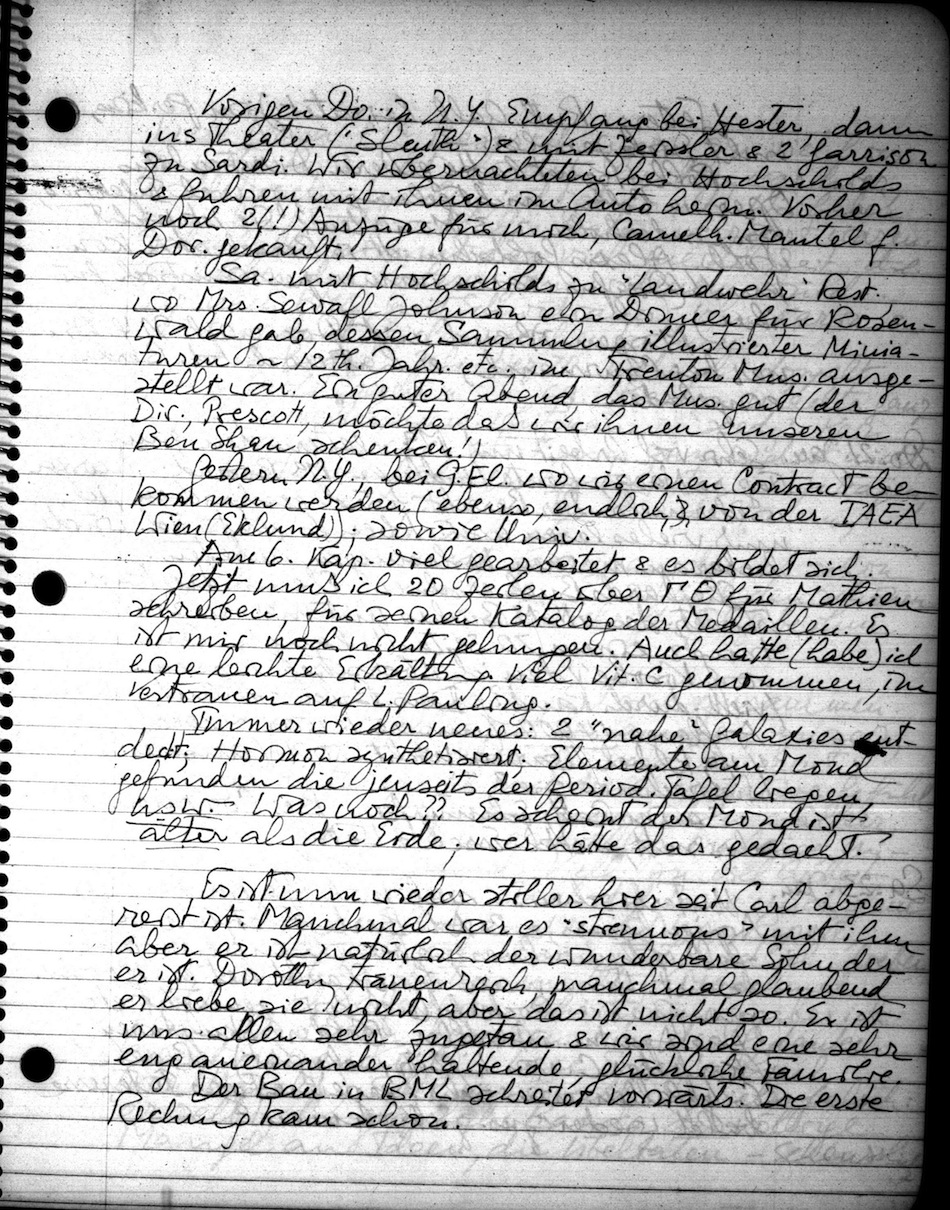 Vorigen Do. in N.Y. Empfang bei Hester, dann
ins Theater ("Sleuth") & mit Zeissler & 2 Garrison
zu Sardi. Wir übernachteten bei Hochschilds
& fuhren mit ihnen im Auto heim. Vorher
noch 2(!) Anzüge für mich, Camelh. Mantel f.
Dor. gekauft.
Sa. mit Hochschilds zu "Landwehr" Rest.
wo Mrs. Sewall Johnson ein Dinner für Rosen-
wald gab, dessen Sammlung illustrierter Minia-
turen ~ 12th. Jahr. etc. im Trenton Mus. ausge-
stellt war. Ein guter Abend, das Mus. gut (der
Dir., Prescott, möchte das wir ihnen unseren
Ben Shan schenken!)
Gestern N.Y., bei G.El. wo wir einen Contract be-
kommen werden (ebenso, endlich, von der IAEA
Wien (Eklund)); sowie Univ.
Am 6. Kap. viel gearbeitet & es bildet sich.
Jetzt muss ich 20 Zeilen über Γ Θ für Mathieu
schreiben, für seinen Katalog der Medaillen. Es
ist mir noch nicht gelungen. Auch hatte (habe) ich
eine leichte Erkältung. Viel Vit. C genommen, im
Vertrauen auf L. Pauling.
Immer wieder neues: 2 "nahe" Galaxies ent-
deckt; Hormon synthetisiert. Elemente am Mond
gefunden die jenseits der Period. Tafel liegen,
usw. Was noch?? Es scheint der Mond ist
älter als die Erde; wer hätte das gedacht?
Es ist nun wieder stiller hier seit Carl abge-
reist ist. Manchmal war es "strenuous" mit ihm
aber er ist natürlich der wunderbare Sohn der
er ist. Dorothy tränenreich, manchmal glaubend
er liebe sie nicht, aber das ist nicht so. Er ist
uns allen sehr zugetan & wir sind eine sehr
eng aneinander haltende, glückliche Familie.
Der Bau in BML schreitet vorwärts. Die erste
Rechnung kam schon.